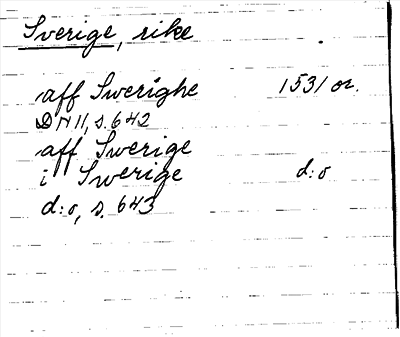 Sverige, rike
aff Swerighe 1531 or.
DN 11, s. 642
aff Swerige
i Swerige d:o
d:o, s. 643